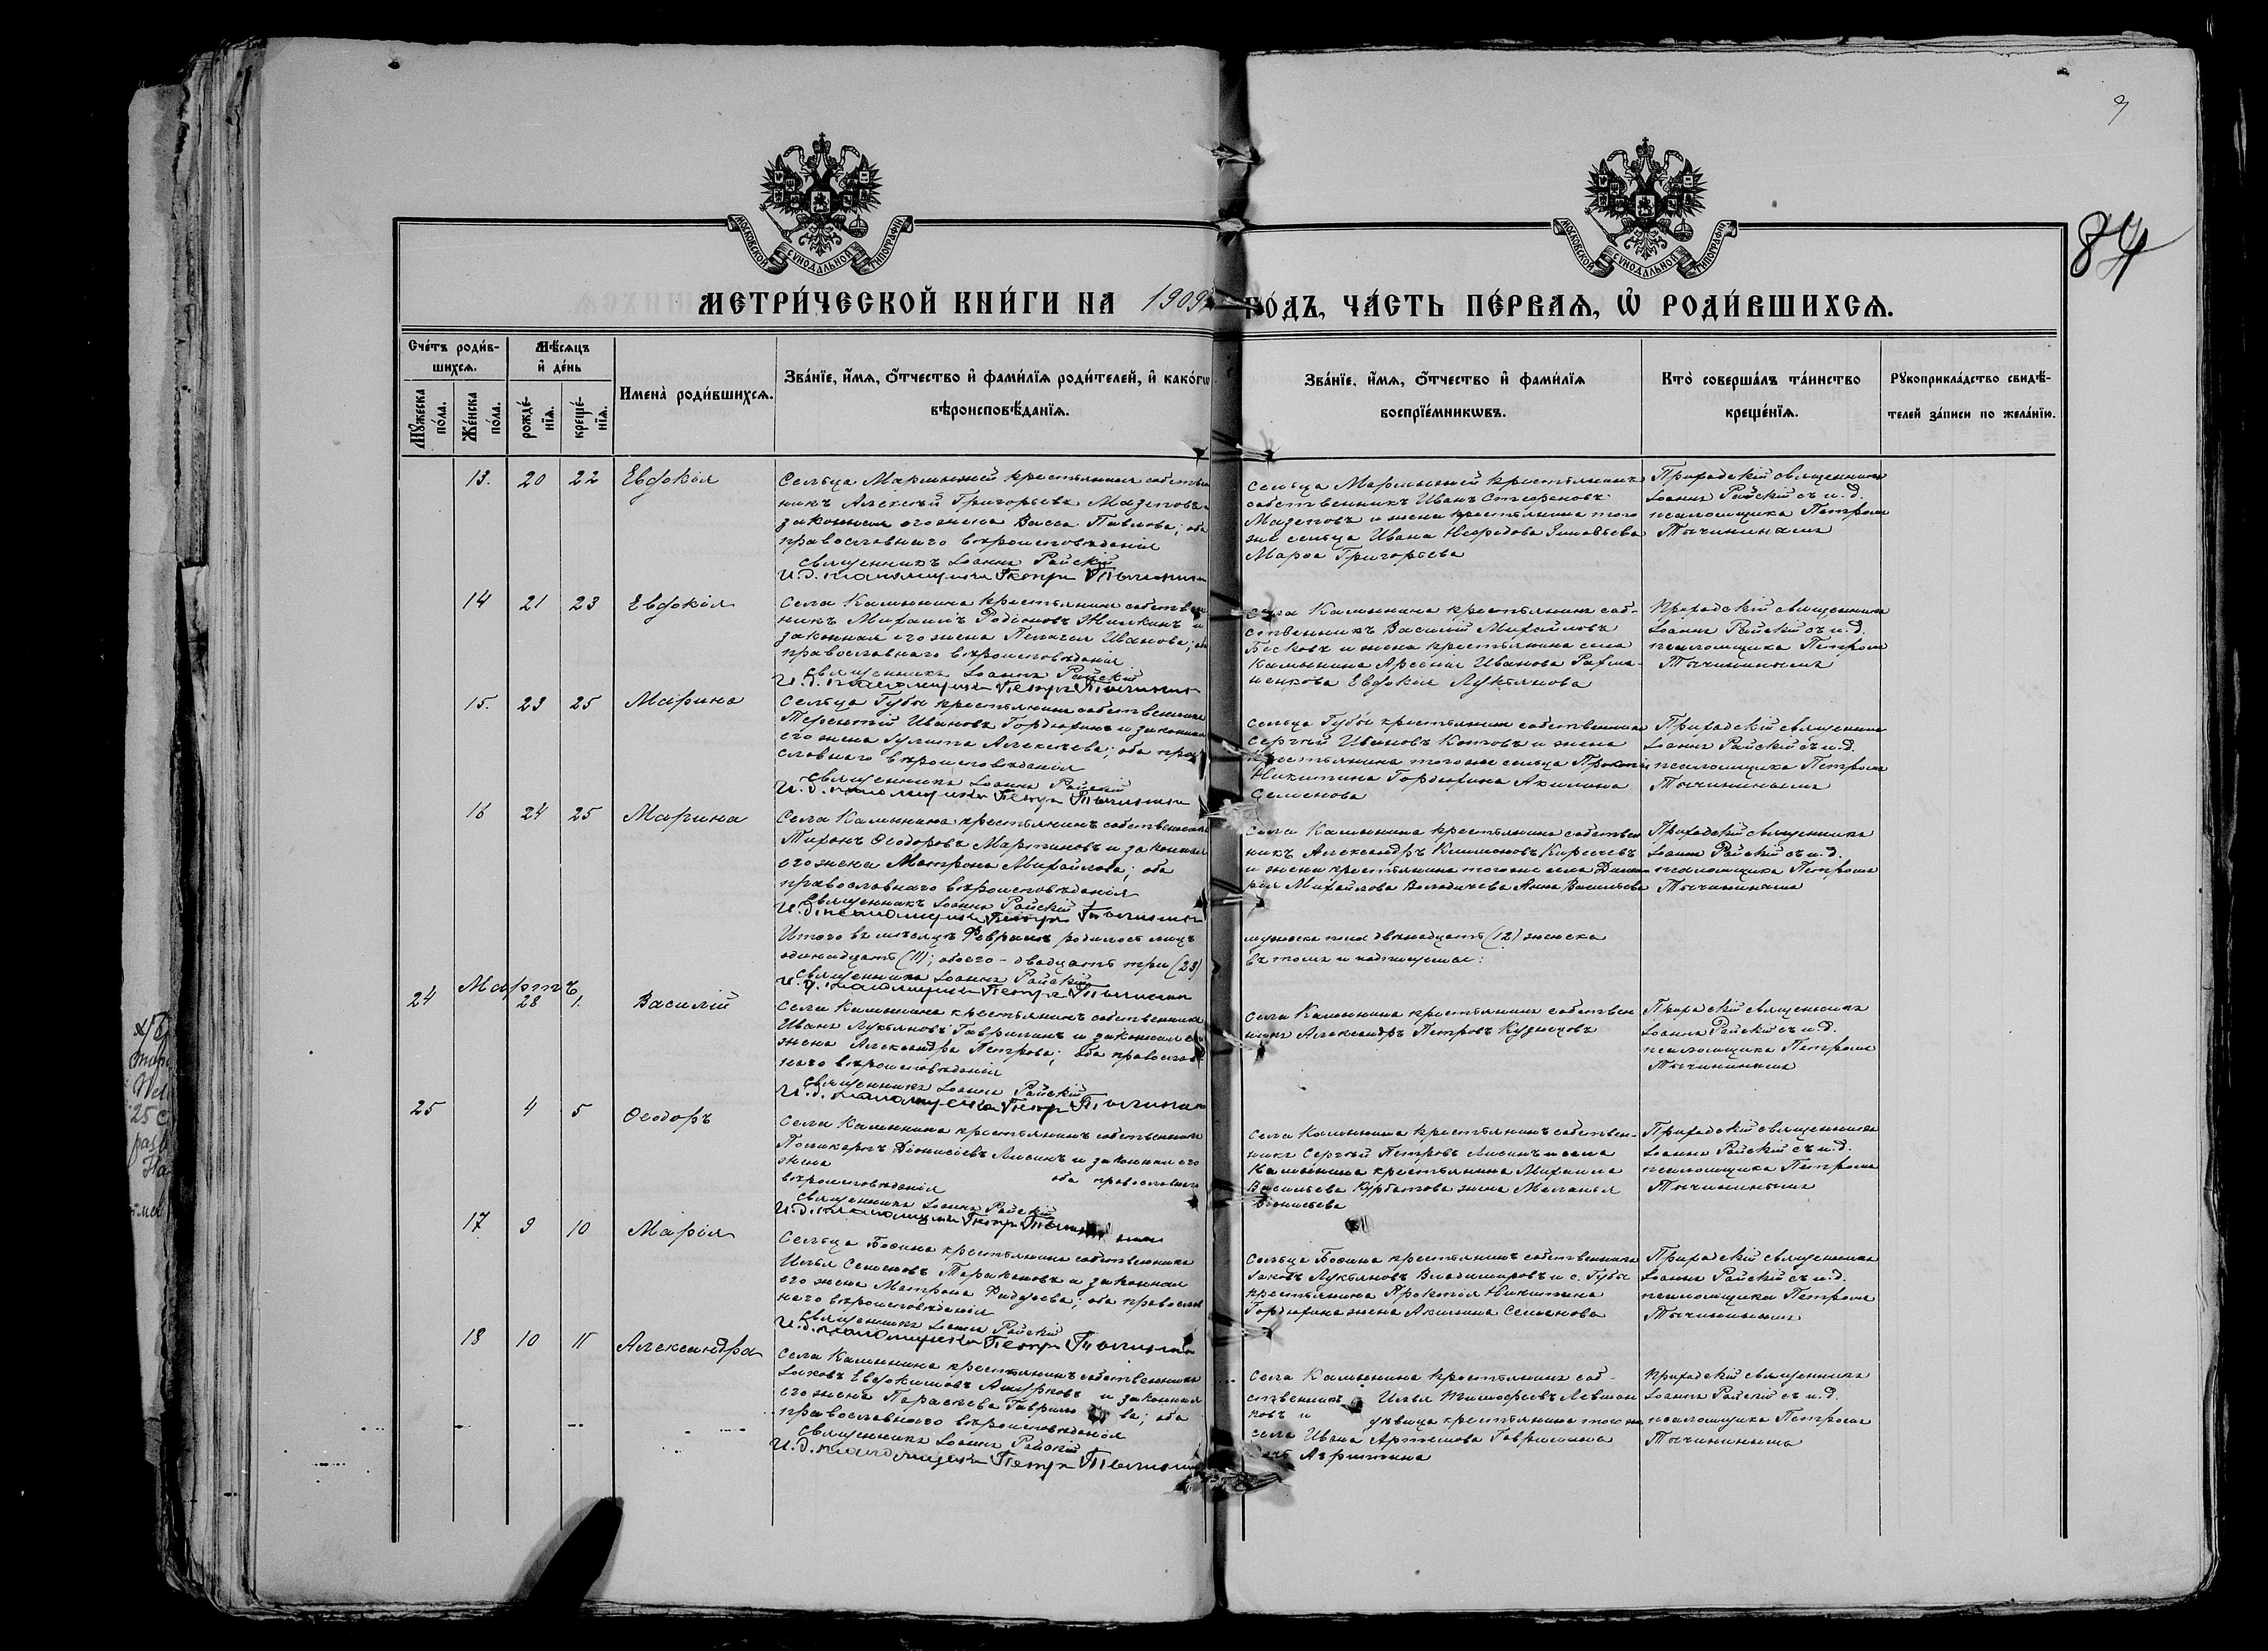 9
84
МОСКОВСКОЙ СѴНОДАЛЬНОЙ ТИПОГРАФІИ
МОСКОВСКОЙ СѴНОДАЛЬНОЙ ТИПОГРАФІИ
МЕТРИ́ЧЕСКОЙ КНИ́ГИ НА 1909 ГО́ДЪ, ЧА́СТЬ ПЕ́РВАѦ, Ѡ҆ РОДИ́ВШИХСѦ.
Сче́тъ роди́в-
шихсѧ.
Мꙋ́жеска по́ла.
Же́нска по́ла.
Мѣ́сѧцъ
и҆ де́нь
рожде́-
нїѧ.
креще́-
нїѧ.
Имена̀ роди́вшихсѧ.
Зва́нїе, и҆́мѧ, ѻ҆́тчество и҆ фами́лїѧ роди́телей, и҆ како́гѡ
вѣроисповѣ́данїѧ.
Зва́нїе, и҆́мѧ, ѻ҆́тчество и҆ фами́лїѧ
воспрїе́мникѡвъ.
Кто̀ соверша́лъ та́инство
креще́нїѧ.
Рꙋкоприкла́дство свидѣ́-
телей за́писи по жела́нїю.
13. 20 22 Евдокія
Сельца Мармыжей крестьянинъ собствен
никъ Алексѣй Григорьевъ Мазеповъ
законная его жена Васса Павлова; оба
православнаго вѣроисповѣданія
Священникъ Іоаннъ Райскій
И. д. псаломщика Петръ Тычининъ
Сельца Мармыжей крестьянинъ
собственникъ Иванъ Стефановъ
Мазеповъ и жена крестьянина того
же сельца Ивана Нефедова Зиновьева
Марѳа Григорьева
Приходскій священникъ
Іоаннъ Райскій съ и. д.
псаломщика Петромъ
Тычининымъ
14 21 23 Евдокія
Села Калынина крестьянинъ собствен
никъ Михаилъ Родіоновъ Жилкинъ и
законная его жена Пелагея Иванова; оба
православнаго вѣроисповѣданія
Священникъ Іоаннъ Райскій
И. д. псаломщика Петръ Тычининъ
Села Калынина крестьянинъ соб-
ственникъ Василій Михайловъ
Бѣсковъ и жена крестьянина села
Калынина Арсенія Иванова
Евдокія Лукьянова
Приходскій священникъ
Іоаннъ Райскій съ и. д.
псаломщика Петромъ
Тычининымъ
15. 23 25 Марина
Сельца Губы крестьянинъ собственникъ
Терентій Ивановъ Гордюхинъ и законная
его жена Іулитта Алексѣева; оба право
славнаго вѣроисповѣданія
Священникъ Іоаннъ Райскій
И. д. псаломщика Петръ Тычининъ
Сельца Губы крестьянинъ собственникъ
Сергѣй Ивановъ Котовъ и жена
крестьянина того же сельца Прокопія
Никитина Гордюхина Акилина
Семенова
Приходскій священникъ
Іоаннъ Райскій съ и. д.
псаломщика Петромъ
Тычининымъ
16 24 25 Марина
Села Калынина крестьянинъ собственникъ
Тихонъ Ѳеодоровъ Мартиновъ и законная
его жена Матрона Михайлова; оба
православнаго вѣроисповѣданія
Священникъ Іоаннъ Райскій
И. д. псаломщика Петръ Тычининъ
Села Калынина крестьянинъ собствен
никъ Александръ Климоновъ Киреечевъ
и жена крестьянина того же села
Михайлова Володичева Анна Васильева
Приходскій священникъ
Іоаннъ Райскій съ и. д.
псаломщика Петромъ
Тычининымъ
Итого въ мѣсяцѣ Февралѣ родилось лицъ
мужеска пола двѣнадцать (12) женска
одинадцать (11); обоего – двадцать три (23)
въ томъ и подписуемся:
Священникъ Іоаннъ Райскій
И. д. псаломщика Петръ Тычининъ
Мартъ
24 28 1. Василій
Села Калынина крестьянинъ собственникъ
Иванъ Лукьяновъ Гаврилинъ и законная его
жена Александра Петрова; оба православ-
наго вѣроисповѣданія
Священникъ Іоаннъ Райскій
И. д. псаломщика Петръ Тычининъ
Села Калынина крестьянинъ собствен
никъ Александръ Петровъ Кузнецовъ
Приходскій священникъ
Іоаннъ Райскій съ и. д.
псаломщика Петромъ
Тычининымъ
25 4 5 Ѳеодоръ
Села Калынина крестьянинъ собственникъ
Поликарпъ Діонисіевъ Лисинъ и законная его
жена оба православнаго
вѣроисповѣданія
Священникъ Іоаннъ Райскій
И. д. псаломщика Петръ Тычининъ
Села Калынина крестьянинъ собствен-
никъ Сергѣй Петровъ Лисинъ и села
Калынина крестьянина Михаила
Васильева Курбатова жена Меланья
Діонисьева
Приходскій священникъ
Іоаннъ Райскій съ и. д.
псаломщика Петромъ
Тычининымъ
17 9 10 Марія
Сельца Босина крестьянинъ собственникъ
Илья Семеновъ Таракановъ и законная
его жена Матрона Фаддеева; оба православ
наго вѣроисповѣданія
Священникъ Іоаннъ Райскій
И. д. псаломщика Петръ Тычининъ
Сельца Босина крестьянинъ собственникъ
Іаковъ Лукьяновъ Владимировъ и с. Губы
крестьянина Прокопія Никитина
Гордюхина жена Акилина Семенова
Приходскій священникъ
Іоаннъ Райскій съ и. д.
псаломщика Петромъ
Тычининымъ
18 10 11 Александра
Села Калынина крестьянинъ собственникъ
Іаковъ Евдокимовъ Ашурковъ и законная
его жена Параскева Гаврилова; оба
православнаго вѣроисповѣданія
Священникъ Іоаннъ Райскій
И. д. псаломщика Петръ Тычининъ
Села Калынина крестьянинъ соб-
ственникъ Илья Тимофеевъ Левшон
ковъ и дѣвица крестьянина того же
села Ивана Артемова Гаврилина
дочь Агрипина
Приходскій священникъ
Іоаннъ Райскій съ и. д.
псаломщика Петромъ
Тычининымъ